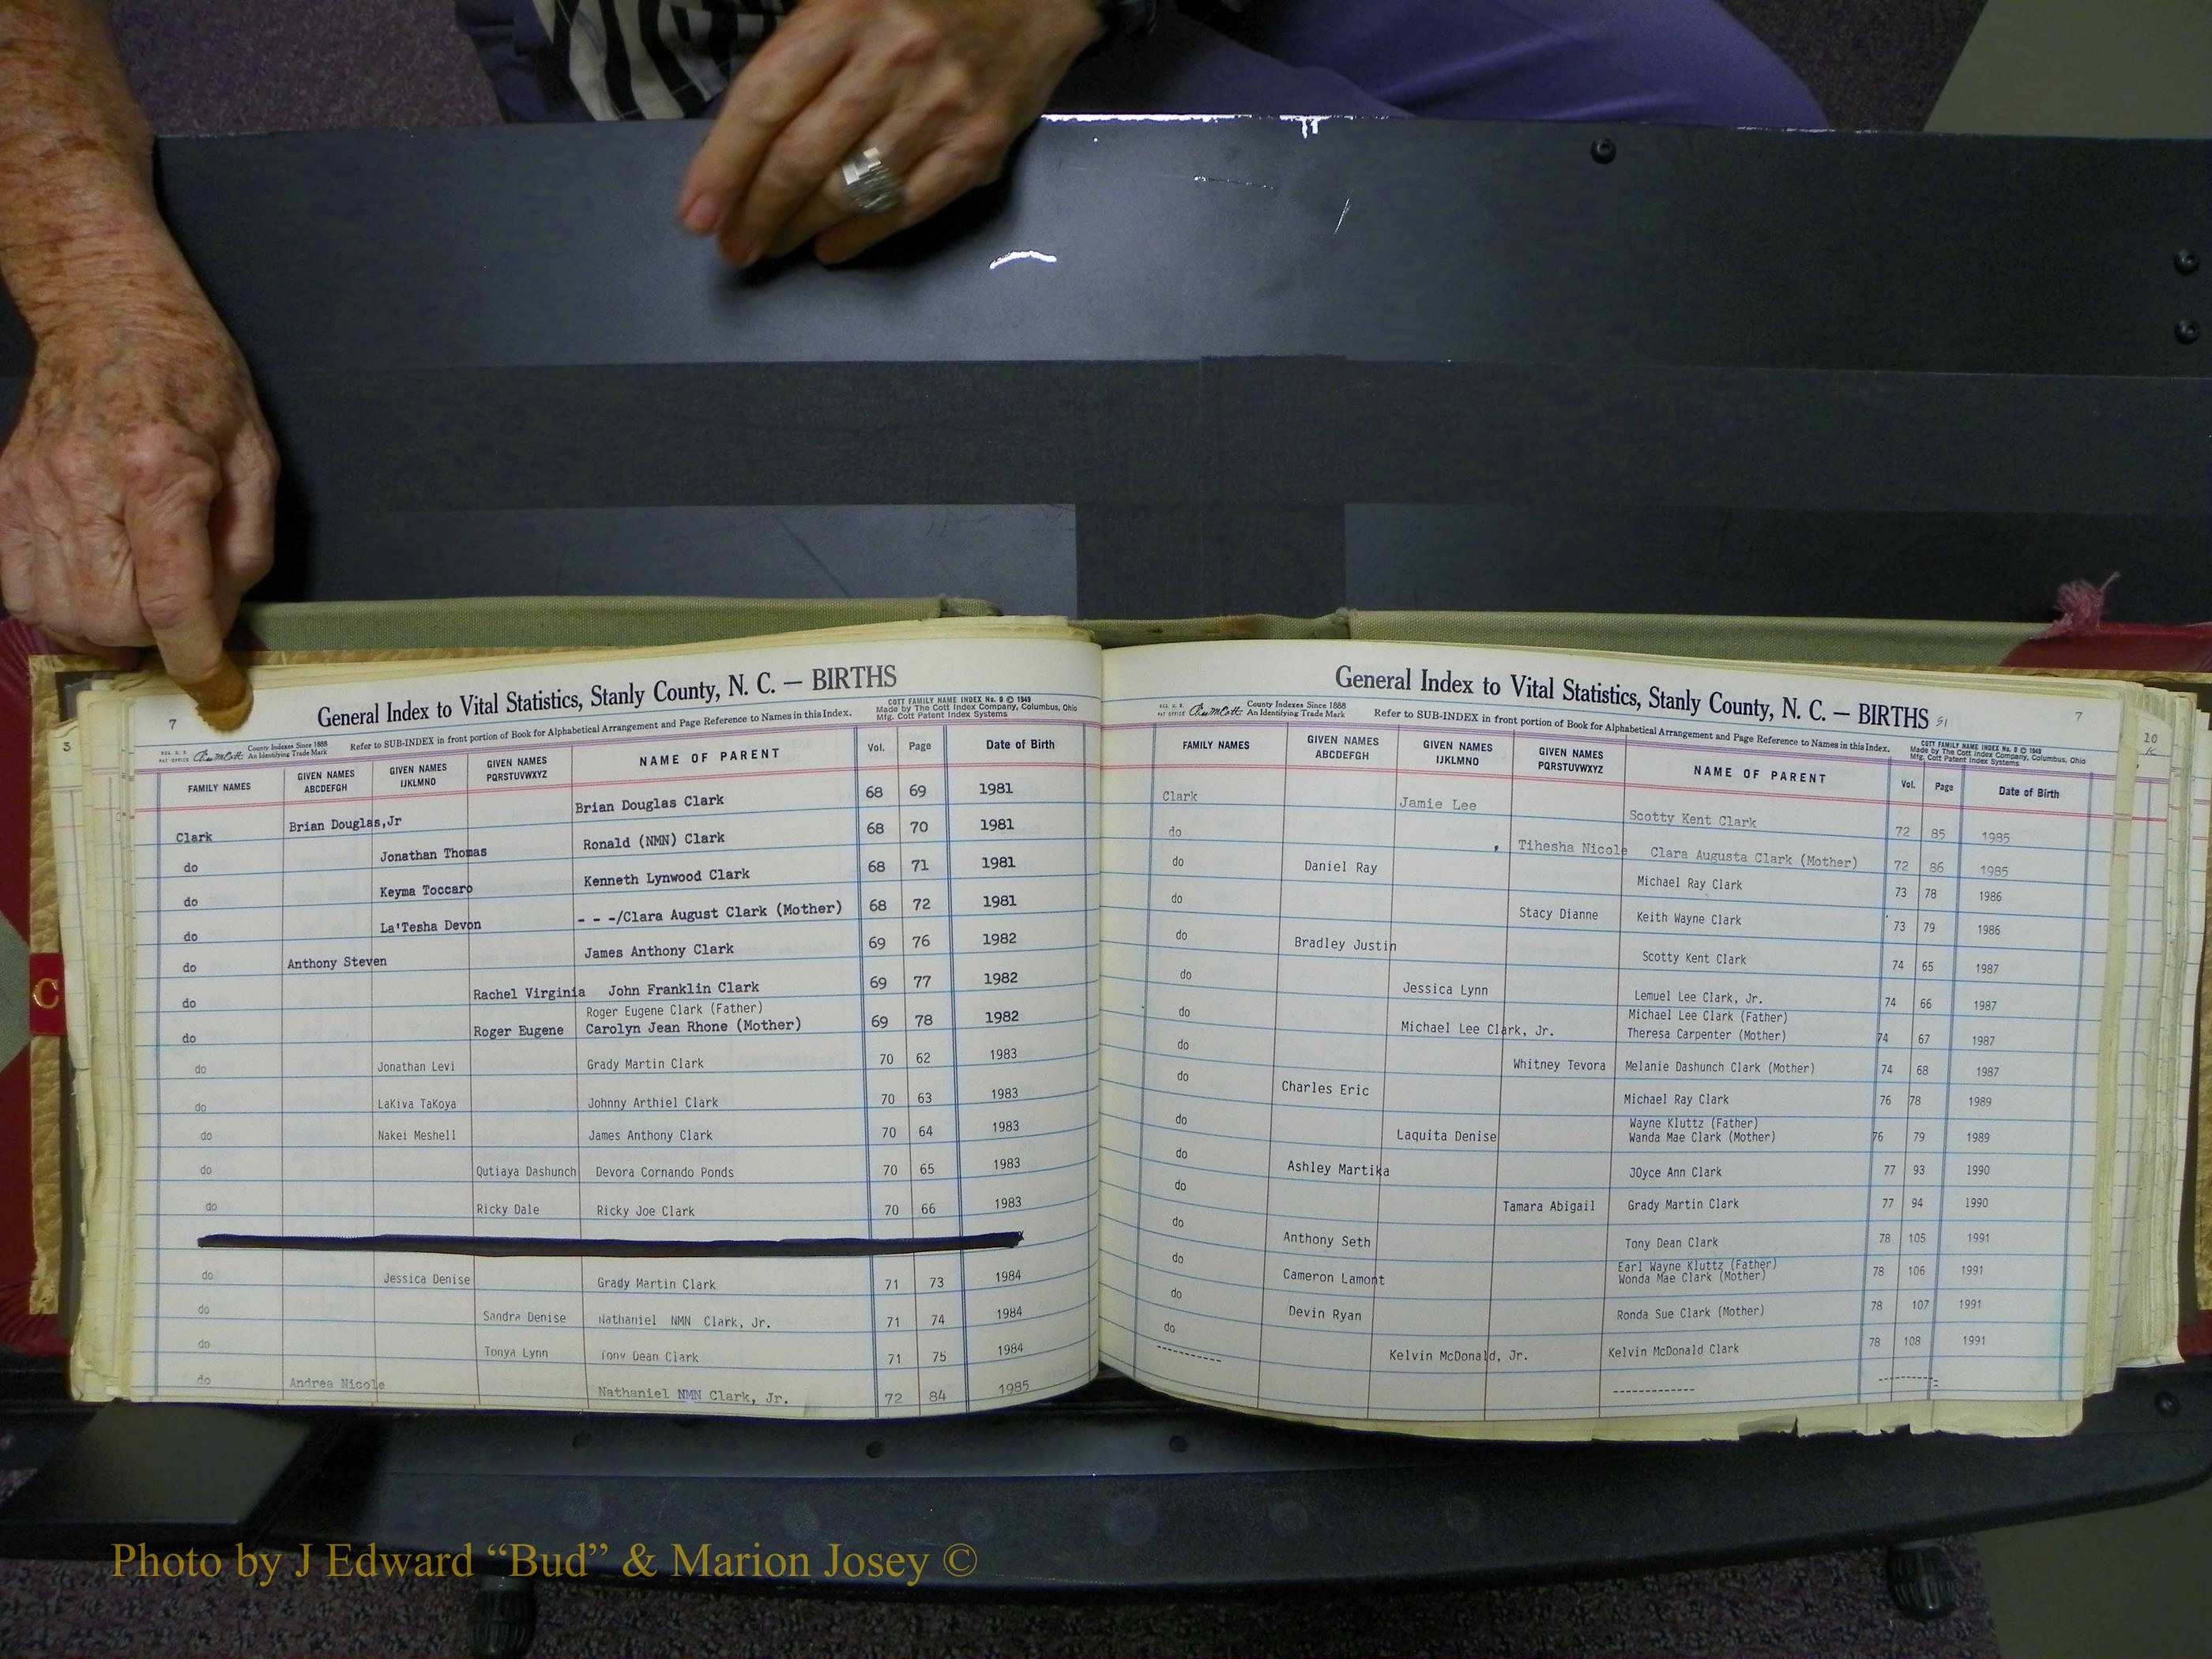 General Index to Vital Statistics, Stanly County, N. C. — BIRTHS
7
County Indexes Since 1888
An Identifying Trade Mark
Refer to SUB-INDEX in front portion of Book for Alphabetical Arrangement and Page Reference to Names in this Index.
COTT FAMILY NAME INDEX No. 9 © 1949
Made by The Cott Index Company, Columbus, Ohio
Mfg. Cott Patent Index Systems
FAMILY NAMES GIVEN NAMES ABCDEFGH GIVEN NAMES IJKLMNO GIVEN NAMES PQRSTUVWXYZ NAME OF PARENT Vol. Page Date of Birth
Clark Brian Douglas,Jr Brian Douglas Clark 68 69 1981
do Jonathan Thomas Ronald (NMN) Clark 68 70 1981
do Keyma Toccaro Kenneth Lynwood Clark 68 71 1981
do La'Tesha Devon - - -/Clara August Clark (Mother) 68 72 1981
do Anthony Steven James Anthony Clark 69 76 1982
do Rachel Virginia John Franklin Clark 69 77 1982
Roger Eugene Clark (Father)
do Roger Eugene Carolyn Jean Rhone (Mother) 69 78 1982
do Jonathan Levi Grady Martin Clark 70 62 1983
do LaKiva TaKoya Johnny Arthiel Clark 70 63 1983
do Nakei Meshell James Anthony Clark 70 64 1983
do Qutiaya Dashunch Devora Cornando Ponds 70 65 1983
do Ricky Dale Ricky Joe Clark 70 66 1983
do Jessica Denise Grady Martin Clark 71 73 1984
do Sandra Denise Nathaniel NMN Clark, Jr. 71 74 1984
do Tonya Lynn Tony Dean Clark 71 75 1984
do Andrea Nicole Nathaniel NMN Clark, Jr. 72 84 1985
General Index to Vital Statistics, Stanly County, N. C. — BIRTHS 51
7
County Indexes Since 1888
An Identifying Trade Mark
Refer to SUB-INDEX in front portion of Book for Alphabetical Arrangement and Page Reference to Names in this Index.
COTT FAMILY NAME INDEX No. 9 © 1949
Made by The Cott Index Company, Columbus, Ohio
Mfg. Cott Patent Index Systems
FAMILY NAMES GIVEN NAMES ABCDEFGH GIVEN NAMES IJKLMNO GIVEN NAMES PQRSTUVWXYZ NAME OF PARENT Vol. Page Date of Birth
Clark Jamie Lee Scotty Kent Clark 72 85 1985
do Tihesha Nicole Clara Augusta Clark (Mother) 72 86 1985
do Daniel Ray Michael Ray Clark 73 78 1986
do Stacy Dianne Keith Wayne Clark 73 79 1986
do Bradley Justin Scotty Kent Clark 74 65 1987
do Jessica Lynn Lemuel Lee Clark, Jr. 74 66 1987
Michael Lee Clark (Father)
do Michael Lee Clark, Jr. Theresa Carpenter (Mother) 74 67 1987
do Whitney Tevora Melanie Dashunch Clark (Mother) 74 68 1987
do Charles Eric Michael Ray Clark 76 78 1989
Wayne Kluttz (Father)
do Laquita Denise Wanda Mae Clark (Mother) 76 79 1989
do Ashley Martika JOyce Ann Clark 77 93 1990
do Tamara Abigail Grady Martin Clark 77 94 1990
do Anthony Seth Tony Dean Clark 78 105 1991
Earl Wayne Kluttz (Father)
do Cameron Lamont Wonda Mae Clark (Mother) 78 106 1991
do Devin Ryan Ronda Sue Clark (Mother) 78 107 1991
do Kelvin McDonald, Jr. Kelvin McDonald Clark 78 108 1991
3
C
10
Photo by J Edward “Bud” & Marion Josey ©